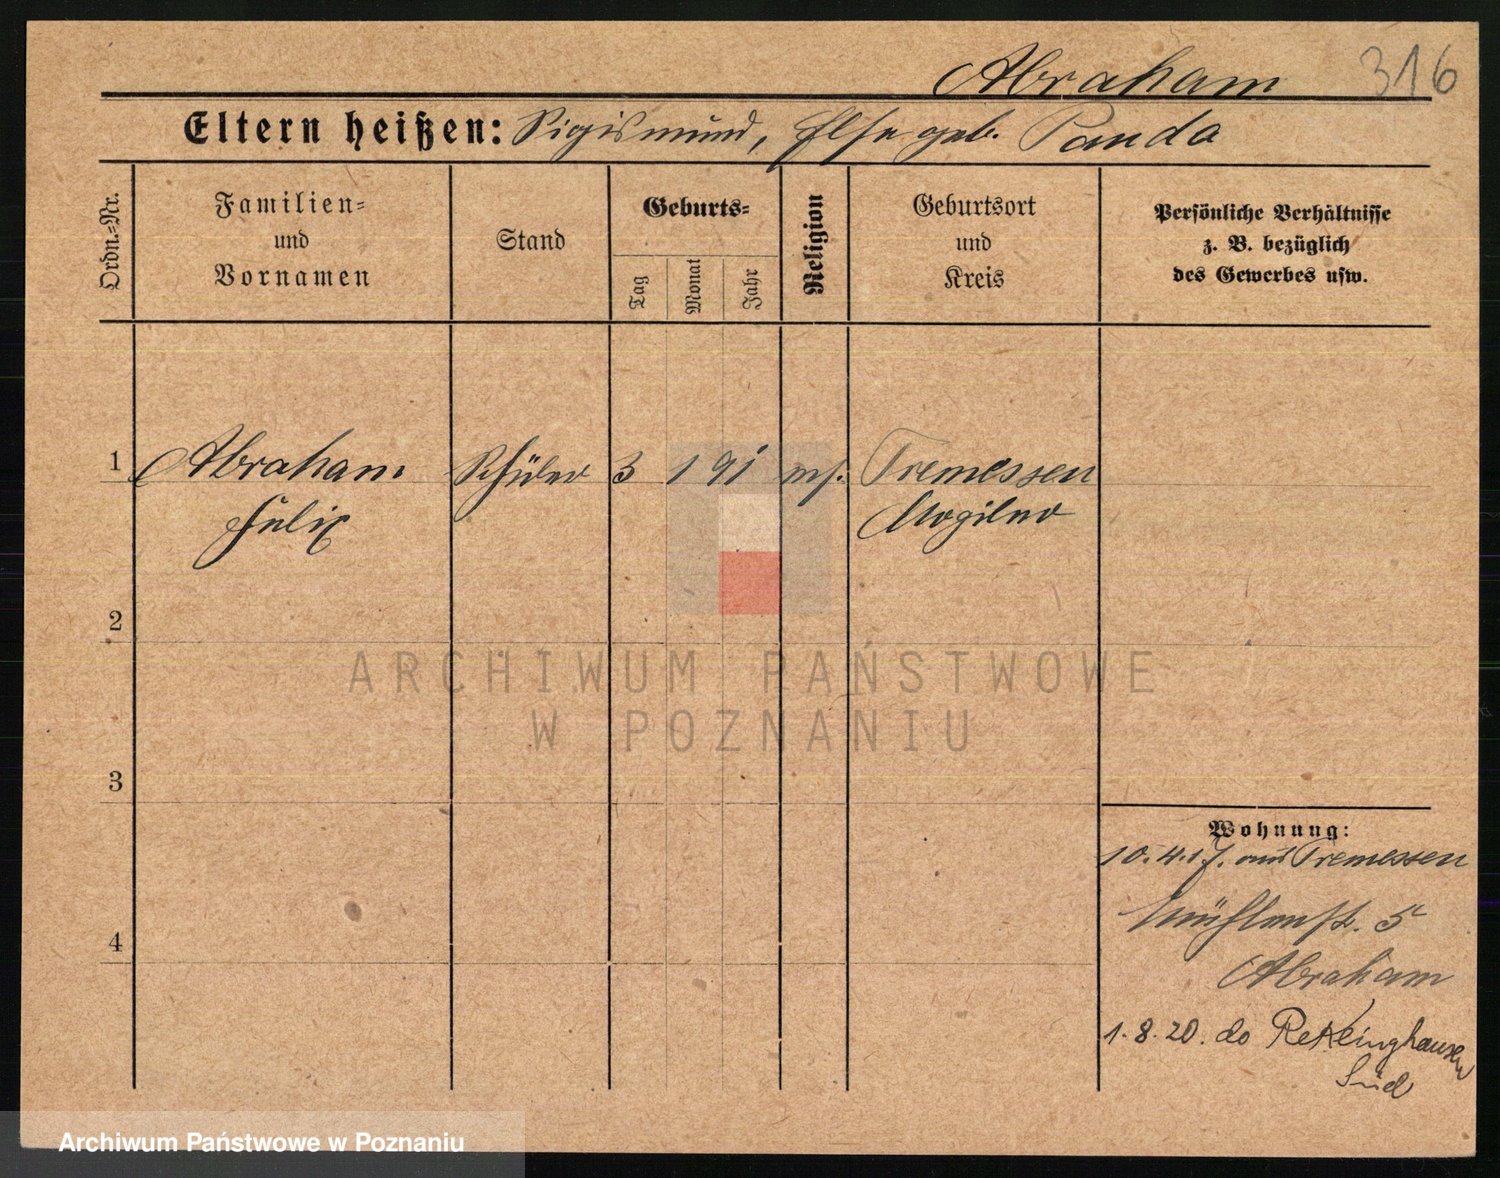 Abraham 316
Eltern heißen: Sigismund, Else geb. Panda
Ordn.-Nr.
Familien-
und
Vornamen
Stand
Geburts-
Tag
Monat
Jahr
Religion
Geburtsort
und
Kreis
Persönliche Verhältnisse
z. B. bezüglich
des Gewerbes usw.
1 Abraham Schüler 3 1 91 Tremessen
Felix Mogilno
2
3
4
ARCHIWUM PAŃSTWOWE
W POZNANIU
Wohnung:
10.4.17. aus Tremessen
Mühlenstr. 5
Abraham
1.8.20. do Rekeinghausen
Süd
Archiwum Państwowe w Poznaniu